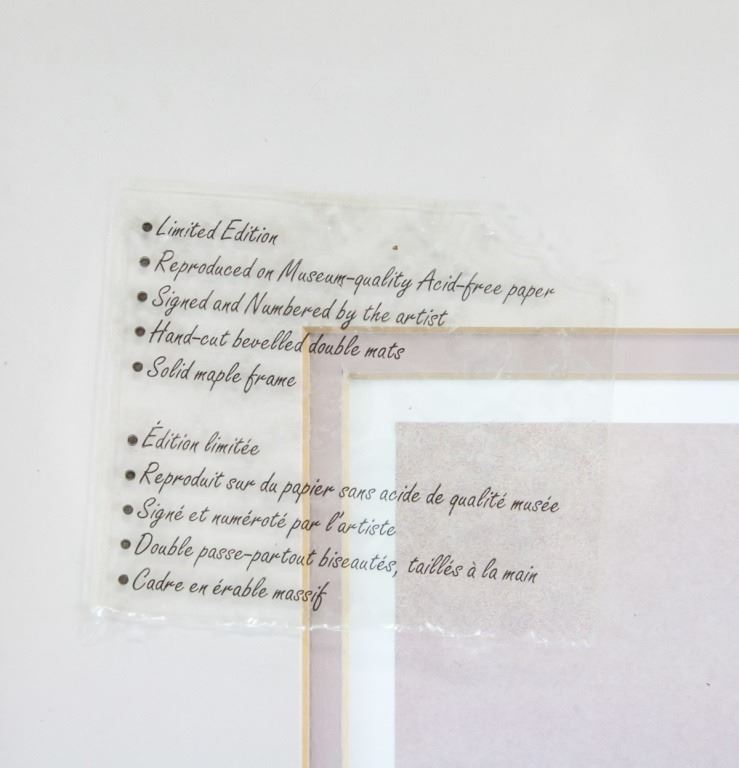 • Limited Edition
• Reproduced on Museum-quality Acid-free paper
• Signed and Numbered by the artist
• Hand-cut bevelled double mats
• Solid maple frame
• Édition limitée
• Reproduit sur du papier sans acide de qualité musée
• Signé et numéroté par l'artiste
• Double passe-partout biseautés, taillés à la main
• Cadre en érable massif